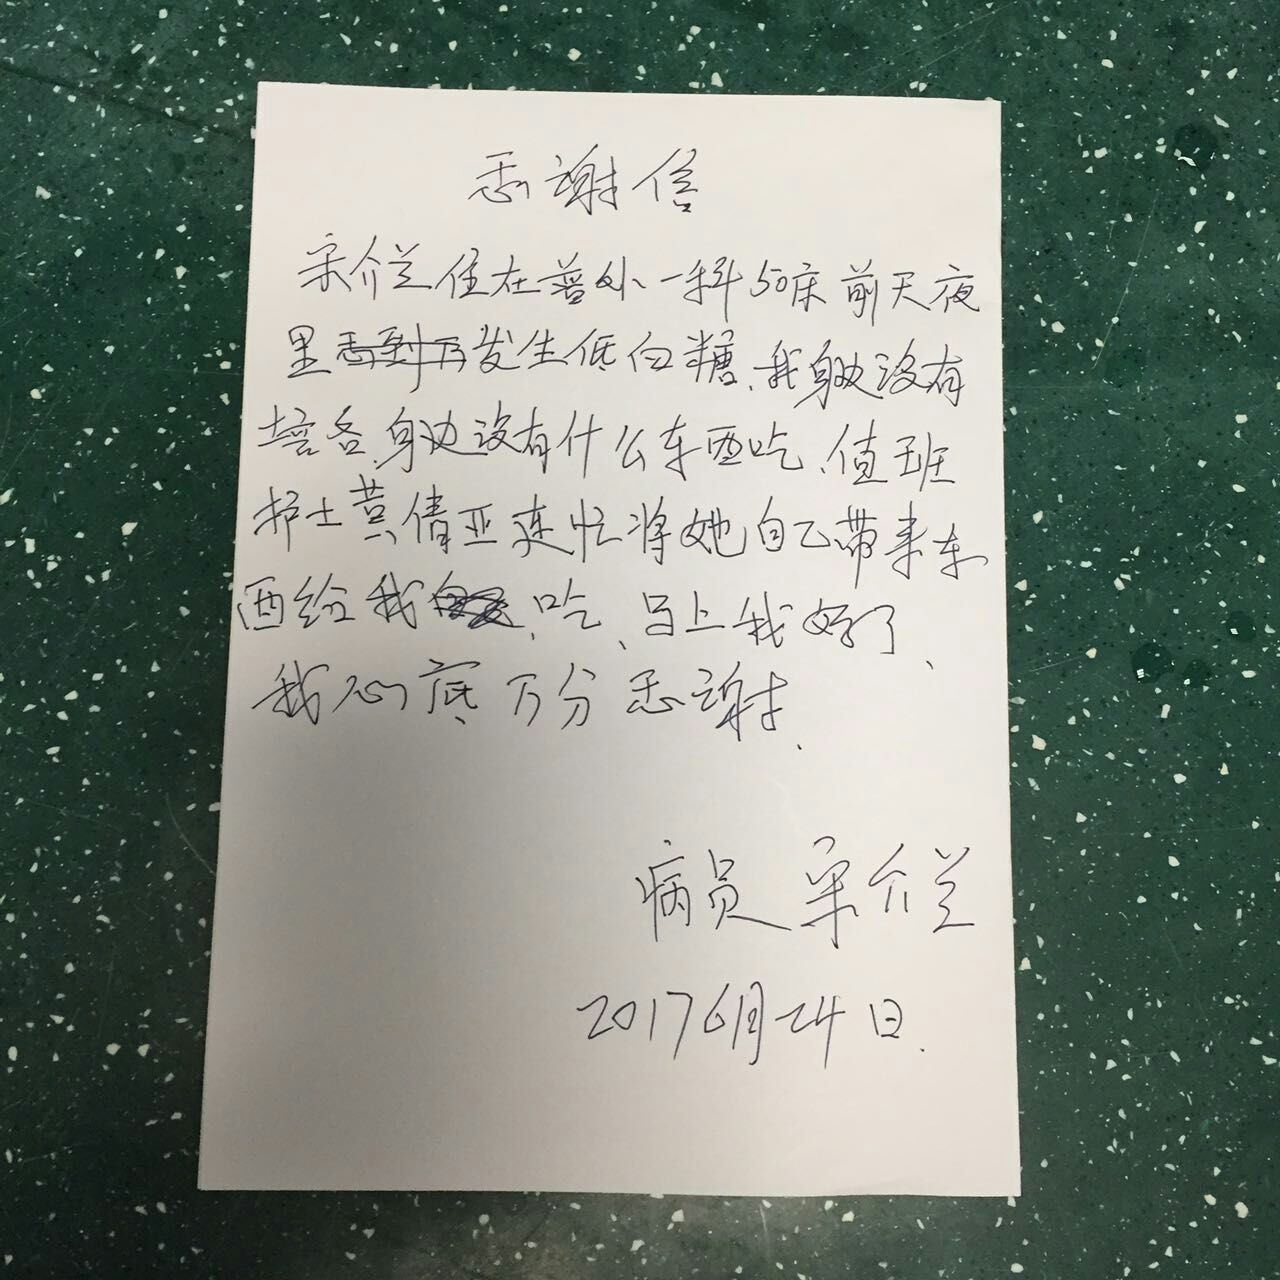 感谢信
宋介兰住在普外一科50床前天夜
里发生低白糖、我身边没有
培各、身边没有什么东西吃、值班
护士黄倩亚连忙将她自己带来东
西给我吃、马上我好了、
我心底万分感谢、
病员 宋介兰
2017 6月24日.